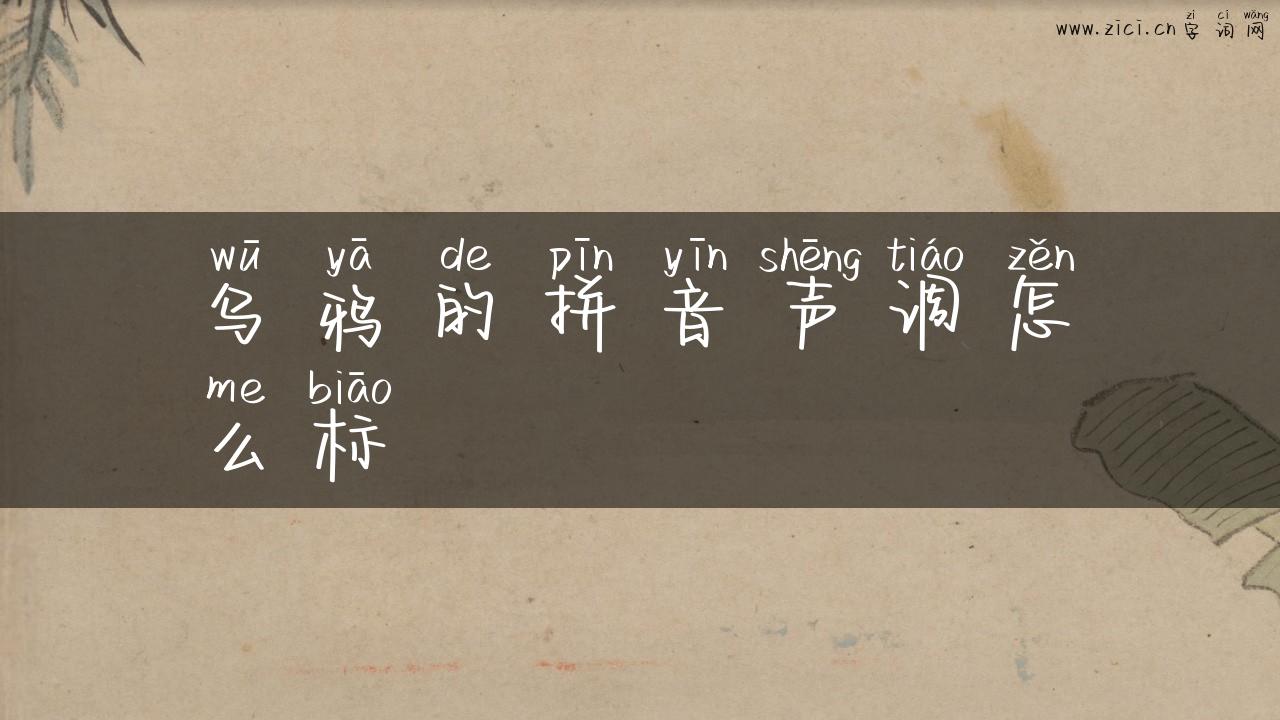 zì cí wǎng
www.zici.cn 字 词 网
wū yā de pīn yīn shēng tiáo zěn
乌 鸦 的 拼 音 声 调 怎
me biāo
么 标